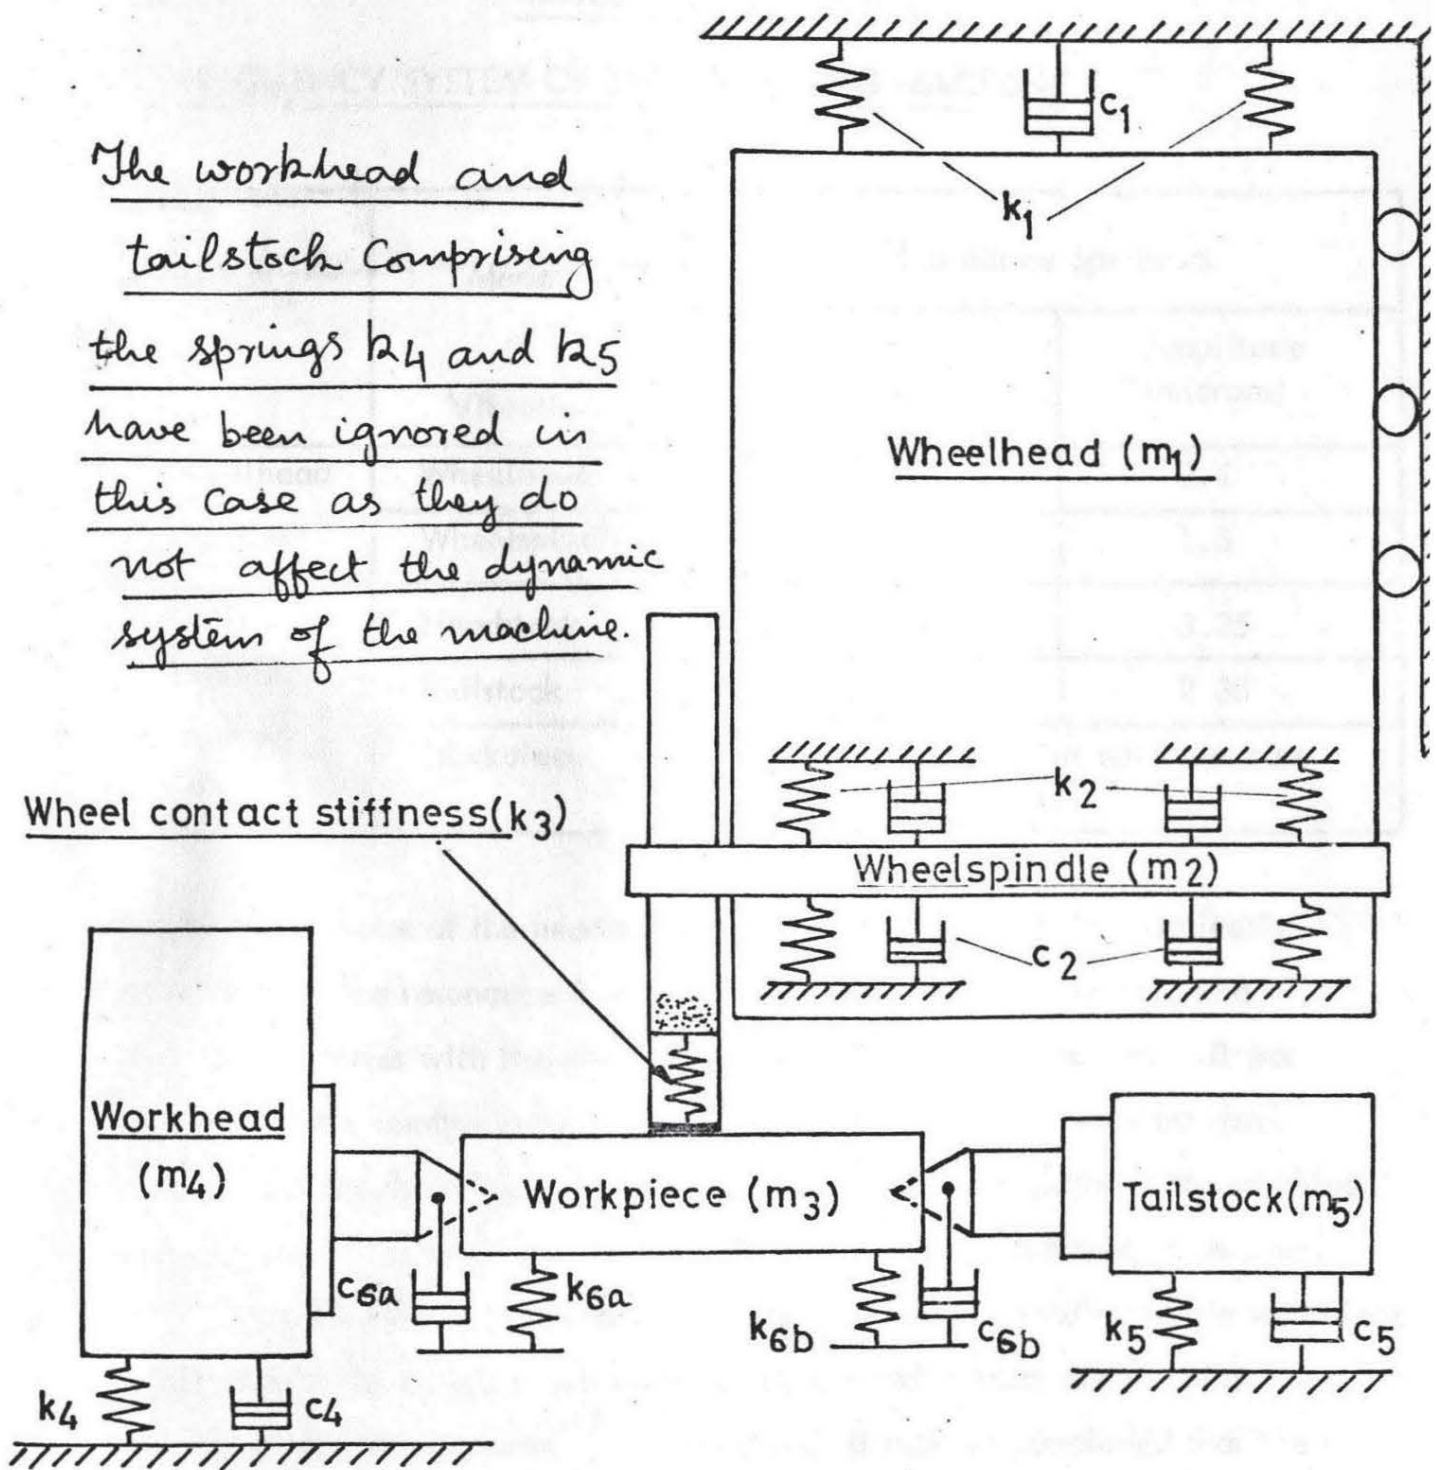 The workhead and
tailstock Comprising
the springs k4 and k5
have been ignored in
this case as they do
not affect the dynamic
system of the machine.
c1
k1
Wheelhead (m1)
k2
Wheel contact stiffness(k3)
Wheelspindle (m2)
c2
Workhead
(m4)
Workpiece (m3)
Tailstock(m5)
c6a
k6a
k6b
c6b
k5
c5
k4
c4